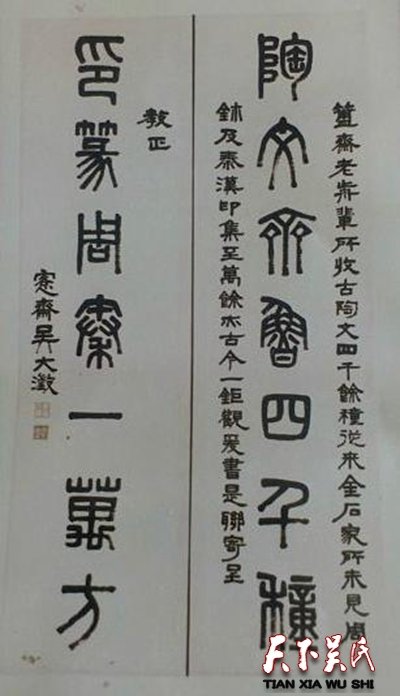 簠齋老前輩所收古陶文四千餘種從來金石家所未見周
陶文齊魯四千種
鉥及秦漢印集至萬餘亦古今一鉅觀爰書是聯寄呈
教正
印篆周秦一萬方
愙齋吳大澂
天下吴氏
TIAN XIA WU SHI